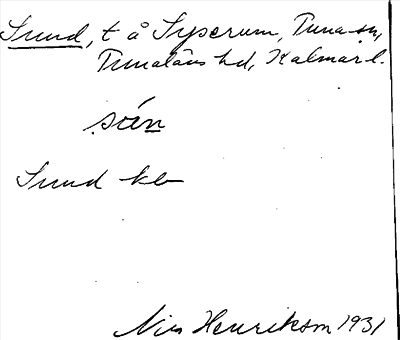 Sund, t å Syserum, Tuna sn,
Tunaläns hd, Kalmar l.
sún
Sund kb
Nils Henrikson 1931